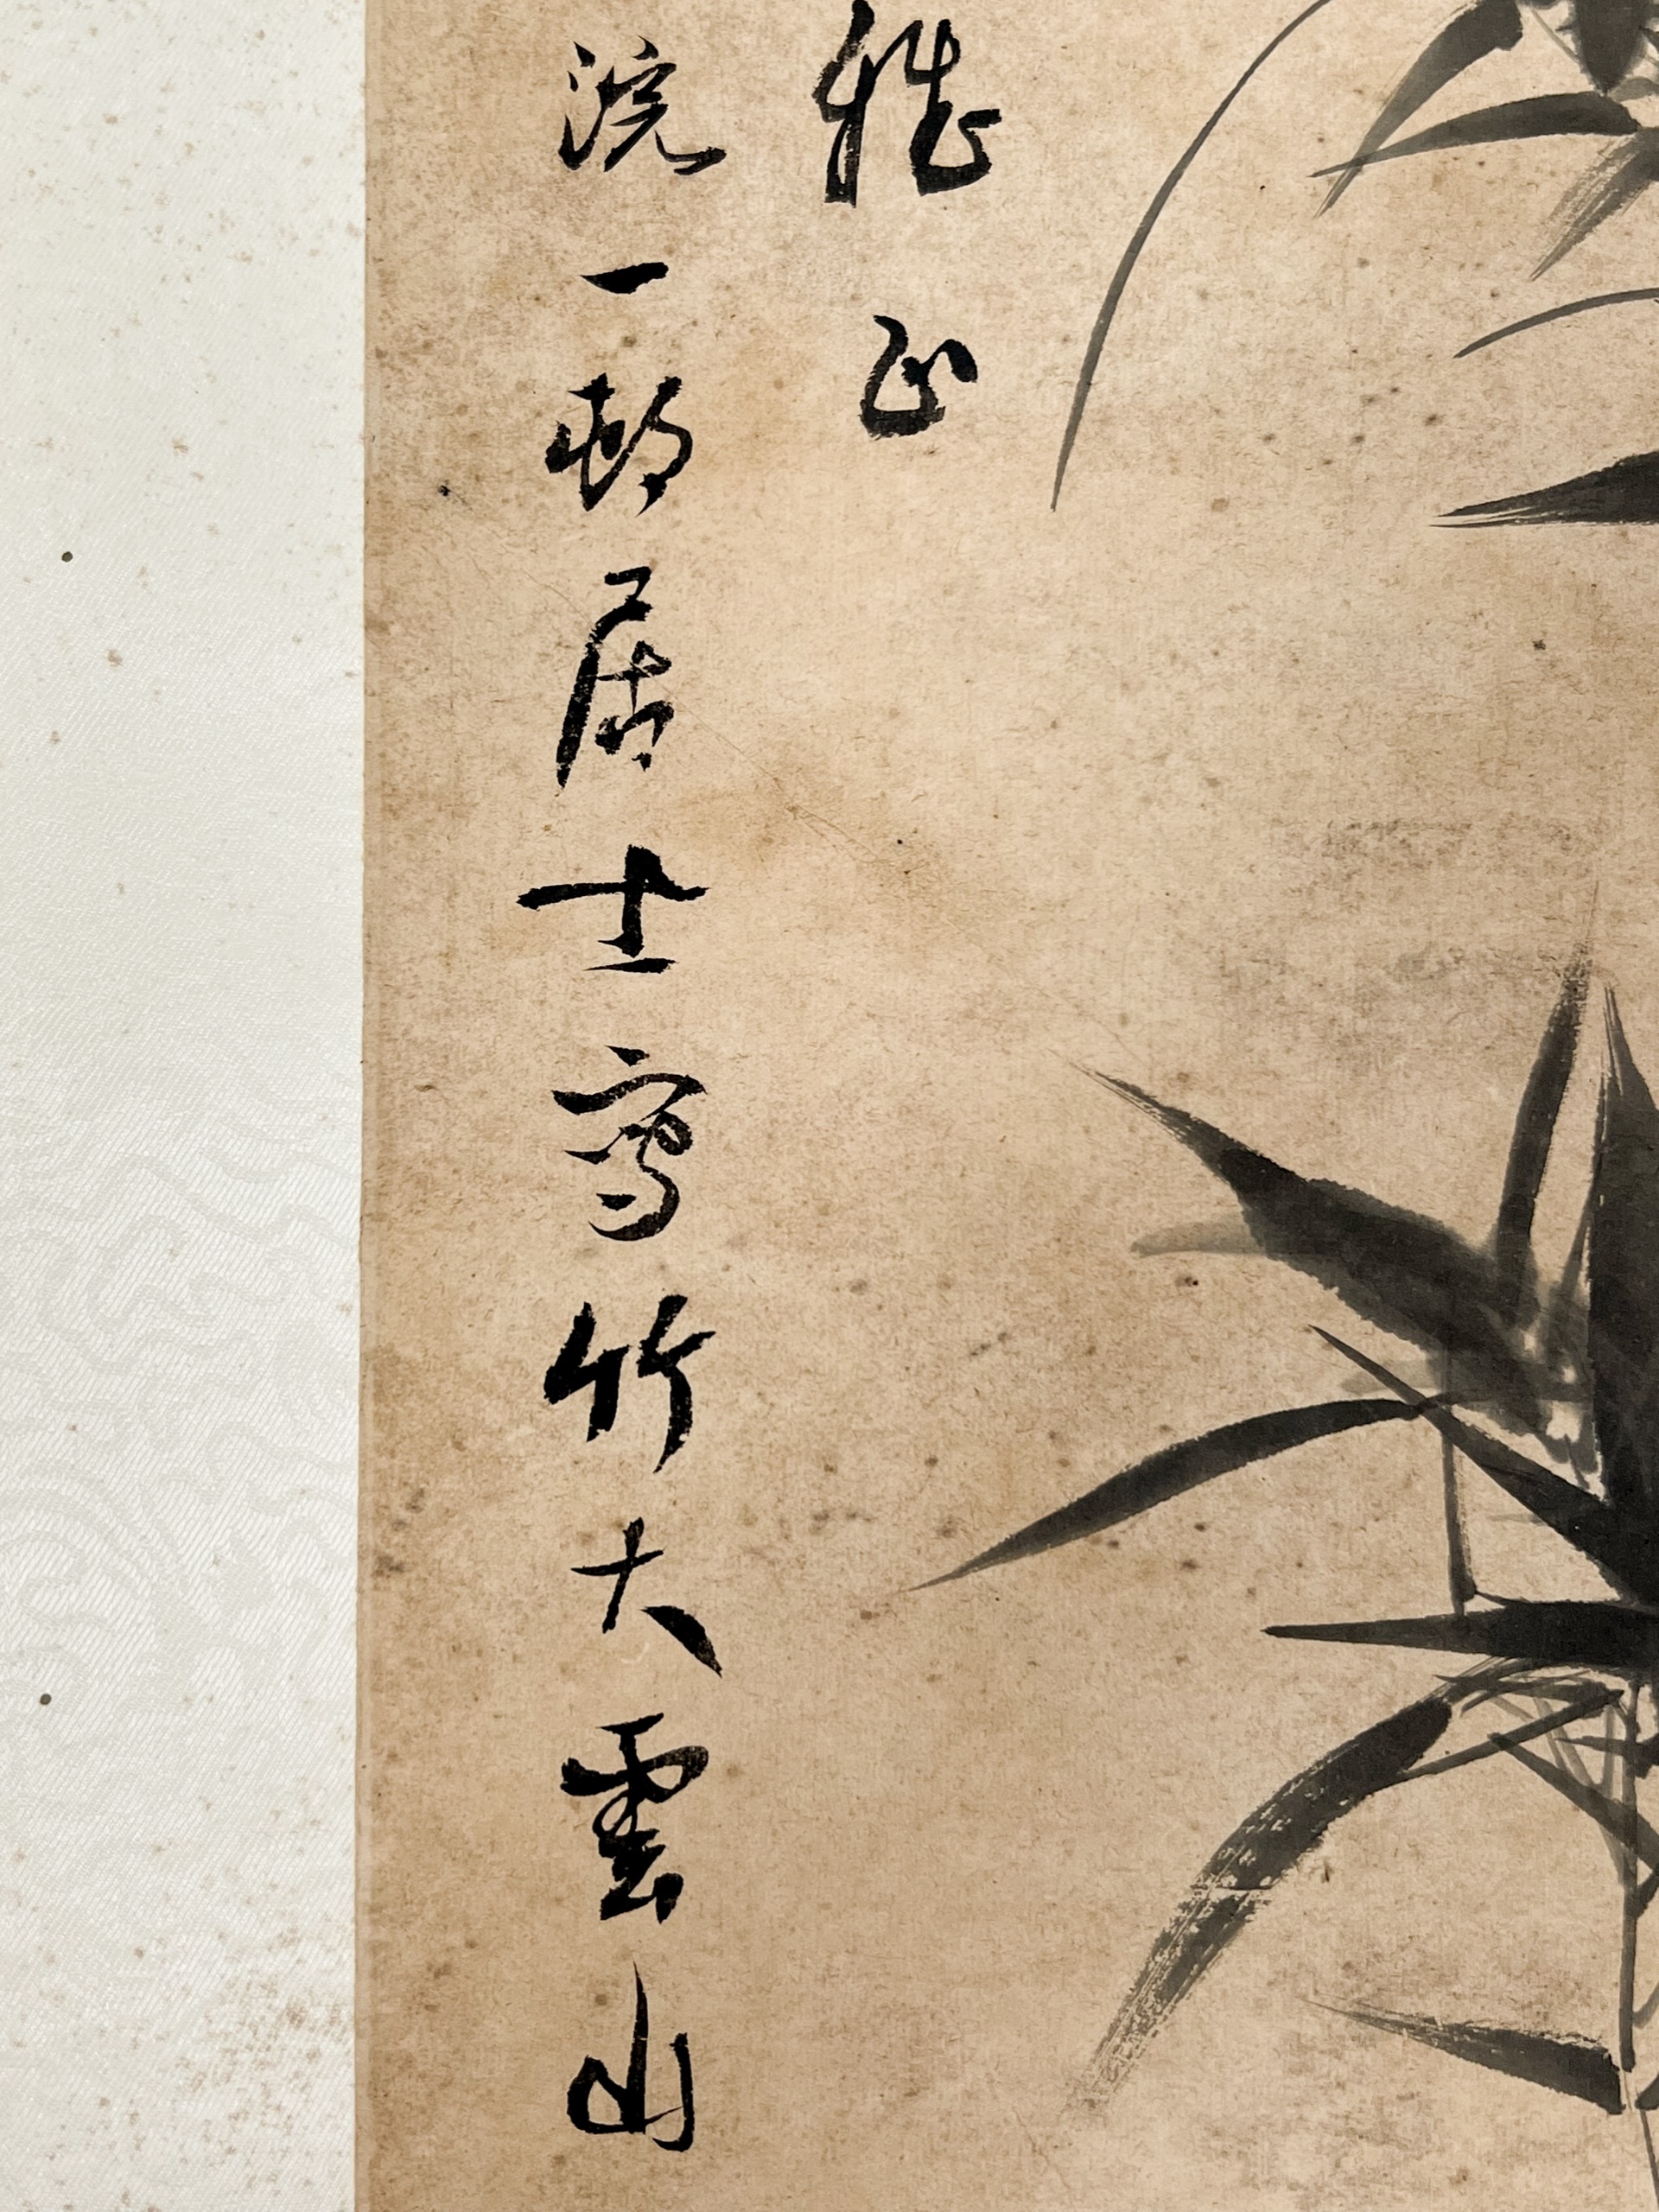 雅正
浣一邨居士寫竹大雲山